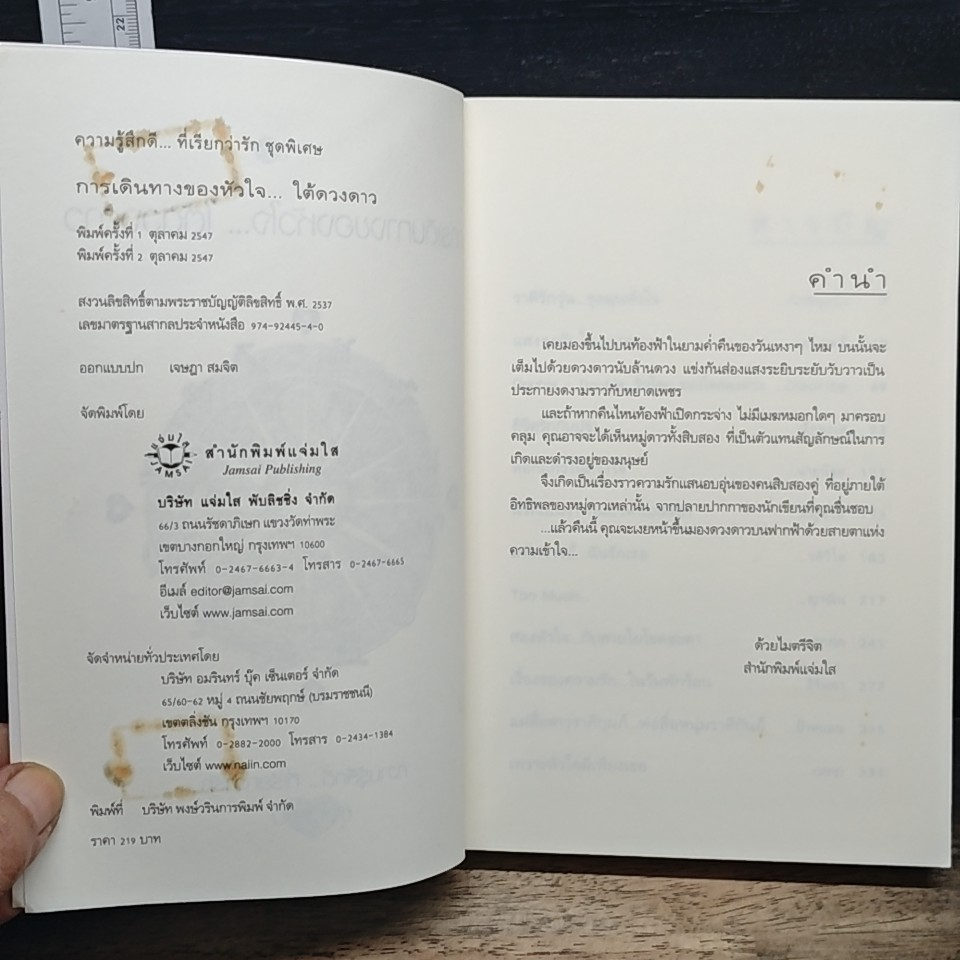 22
ความรู้สึกดี... ที่เรียกว่ารัก ชุดพิเศษ
การเดินทางของหัวใจ... ใต้ดวงดาว
พิมพ์ครั้งที่ 1 ตุลาคม 2547
พิมพ์ครั้งที่ 2 ตุลาคม 2547
สงวนลิขสิทธิ์ตามพระราชบัญญัติลิขสิทธิ์ พ.ศ. 2537
เลขมาตรฐานสากลประจำหนังสือ 974-92445-4-0
ออกแบบปก เจษฎา สมจิต
จัดพิมพ์โดย
JAMSAI
สำนักพิมพ์แจ่มใส
Jamsai Publishing
บริษัท แจ่มใส พับลิชชิ่ง จำกัด
66/3 ถนนรัชดาภิเษก แขวงวัดท่าพระ
เขตบางกอกใหญ่ กรุงเทพฯ 10600
โทรศัพท์ 0-2467-6663-4 โทรสาร 0-2467-6665
อีเมล์ editor@jamsai.com
เว็บไซต์ www.jamsai.com
จัดจำหน่ายทั่วประเทศโดย
บริษัท อมรินทร์ บุ๊ค เซ็นเตอร์ จำกัด
65/60-62 หมู่ 4 ถนนชัยพฤกษ์ (บรมราชชนนี)
เขตตลิ่งชัน กรุงเทพฯ 10170
โทรศัพท์ 0-2882-2000 โทรสาร 0-2434-1384
เว็บไซต์ www.naiin.com
พิมพ์ที่ บริษัท พงษ์วรินการพิมพ์ จำกัด
ราคา 219 บาท
คำนำ
เคยมองขึ้นไปบนท้องฟ้าในยามค่ำคืนของวันเหงาๆ ไหม บนนั้นจะ
เต็มไปด้วยดวงดาวนับล้านดวง แข่งกันส่องแสงระยิบระยับวับวาวเป็น
ประกายงดงามราวกับหยาดเพชร
และถ้าหากคืนไหนท้องฟ้าเปิดกระจ่าง ไม่มีเมฆหมอกใดๆ มาครอบ
คลุม คุณอาจจะได้เห็นหมู่ดาวทั้งสิบสอง ที่เป็นตัวแทนสัญลักษณ์ในการ
เกิดและดำรงอยู่ของมนุษย์
จึงเกิดเป็นเรื่องราวความรักแสนอบอุ่นของคนสิบสองคู่ ที่อยู่ภายใต้
อิทธิพลของหมู่ดาวเหล่านั้น จากปลายปากกาของนักเขียนที่คุณชื่นชอบ
...แล้วคืนนี้ คุณจะเงยหน้าขึ้นมองดวงดาวบนฟากฟ้าด้วยสายตาแห่ง
ความเข้าใจ...
ด้วยไมตรีจิต
สำนักพิมพ์แจ่มใส